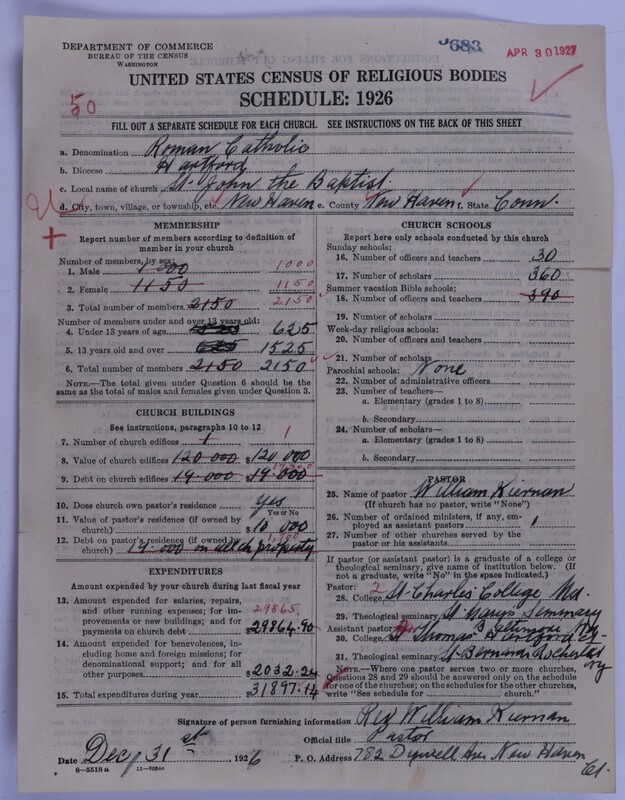 DEPARTMENT OF COMMERCE
BUREAU OF THE CENSUS
WASHINGTON
683
APR 30 1927
UNITED STATES CENSUS OF RELIGIOUS BODIES
SCHEDULE: 1926
50
FILL OUT A SEPARATE SCHEDULE FOR EACH CHURCH. SEE INSTRUCTIONS ON THE BACK OF THIS SHEET
a. Denomination Roman Catholic
b. Diocese Hartford
c. Local name of church St. John the Baptist
d. City, town, village, or township, etc. New Haven e. County New Haven f. State Conn.
MEMBERSHIP
Report number of members according to definition of member in your church
Number of members, by sex:
1. Male 1000 1000
2. Female 1150 1150
3. Total number of members 2150 2150
Number of members under and over 13 years old:
4. Under 13 years of age 625
5. 13 years old and over 625 1525
6. Total number of members 2150 2150
NOTE.—The total given under Question 6 should be the same as the total of males and females given under Question 3.
CHURCH BUILDINGS
See instructions, paragraphs 10 to 12
7. Number of church edifices 1 1
8. Value of church edifices 120 000 $120 000
9. Debt on church edifices 19 000 $19 000
10. Does church own pastor's residence yes
Yes or No
11. Value of pastor's residence (if owned by church) $10 000
12. Debt on pastor's residence (if owned by church) 19 000 on all ch property
EXPENDITURES
Amount expended by your church during last fiscal year
13. Amount expended for salaries, repairs, and other running expenses; for improvements or new buildings; and for payments on church debt 29865 $29864.90
14. Amount expended for benevolences, including home and foreign missions; for denominational support; and for all other purposes $2032.24
15. Total expenditures during year $31897.14
CHURCH SCHOOLS
Report here only schools conducted by this church
Sunday schools:
16. Number of officers and teachers 30
17. Number of scholars 360
Summer vacation Bible schools:
18. Number of officers and teachers 390
19. Number of scholars
Week-day religious schools:
20. Number of officers and teachers
21. Number of scholars
Parochial schools: None
22. Number of administrative officers
23. Number of teachers—
a. Elementary (grades 1 to 8)
b. Secondary
24. Number of scholars—
a. Elementary (grades 1 to 8)
b. Secondary
PASTOR
25. Name of pastor William Kiernan
(If church has no pastor, write "None")
26. Number of ordained ministers, if any, employed as assistant pastors 1
27. Number of other churches served by the pastor or his assistants
If pastor (or assistant pastor) is a graduate of a college or theological seminary, give name of institution below. (If not a graduate, write "No" in the space indicated.)
Pastor: 2
28. College St Charles College Md.
29. Theological seminary St Mary's Seminary
Assistant pastor: Baltimore Md
30. College St Thomas Hartford Ct.
31. Theological seminary St Bernards Rochester
NY
NOTE.—Where one pastor serves two or more churches, Questions 28 and 29 should be answered only on the schedule for one of the churches; on the schedules for the other churches, write "See schedule for church."
Signature of person furnishing information Rev William Kiernan
Official title Pastor
Date Dec 31st, 1926 P. O. Address 782 Dixwell Ave New Haven
Ct.
8—5518 a